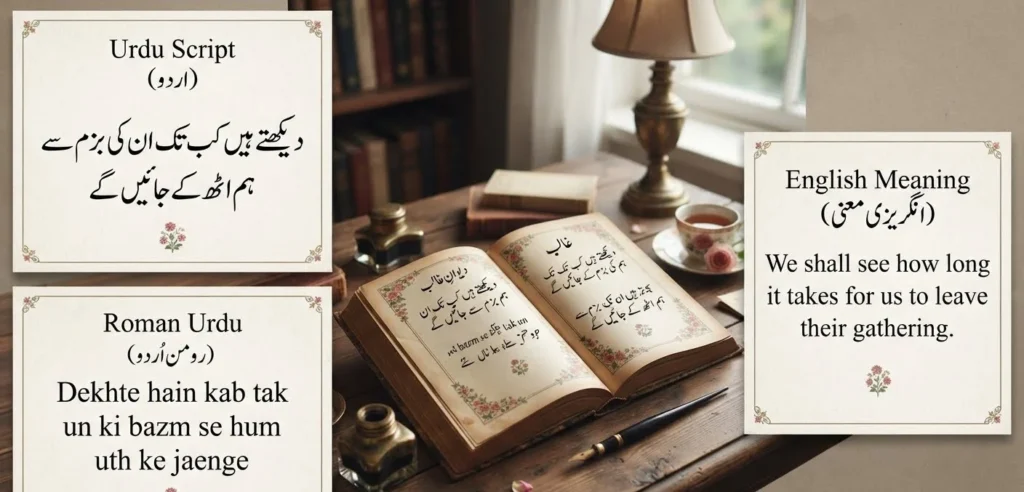 Urdu Script
(اردو)
دیکھتے ہیں کب تک ان کی بزم سے
ہم اٹھ کے جائیں گے
Roman Urdu
(رومن اُردو)
Dekhte hain kab tak
un ki bazm se hum
uth ke jaenge
دیوان غالب
دیکھتے ہیں کب تک ان
ہم بزم سے جائیں گے
bazm se tak un
غالب
دیکھتے ہیں کب تک تک
ہم کی بزم کے جائیں گے
ہم اٹھ کے جائیں گے
English Meaning
(انگریزی معنی)
We shall see how long
it takes for us to leave
their gathering.